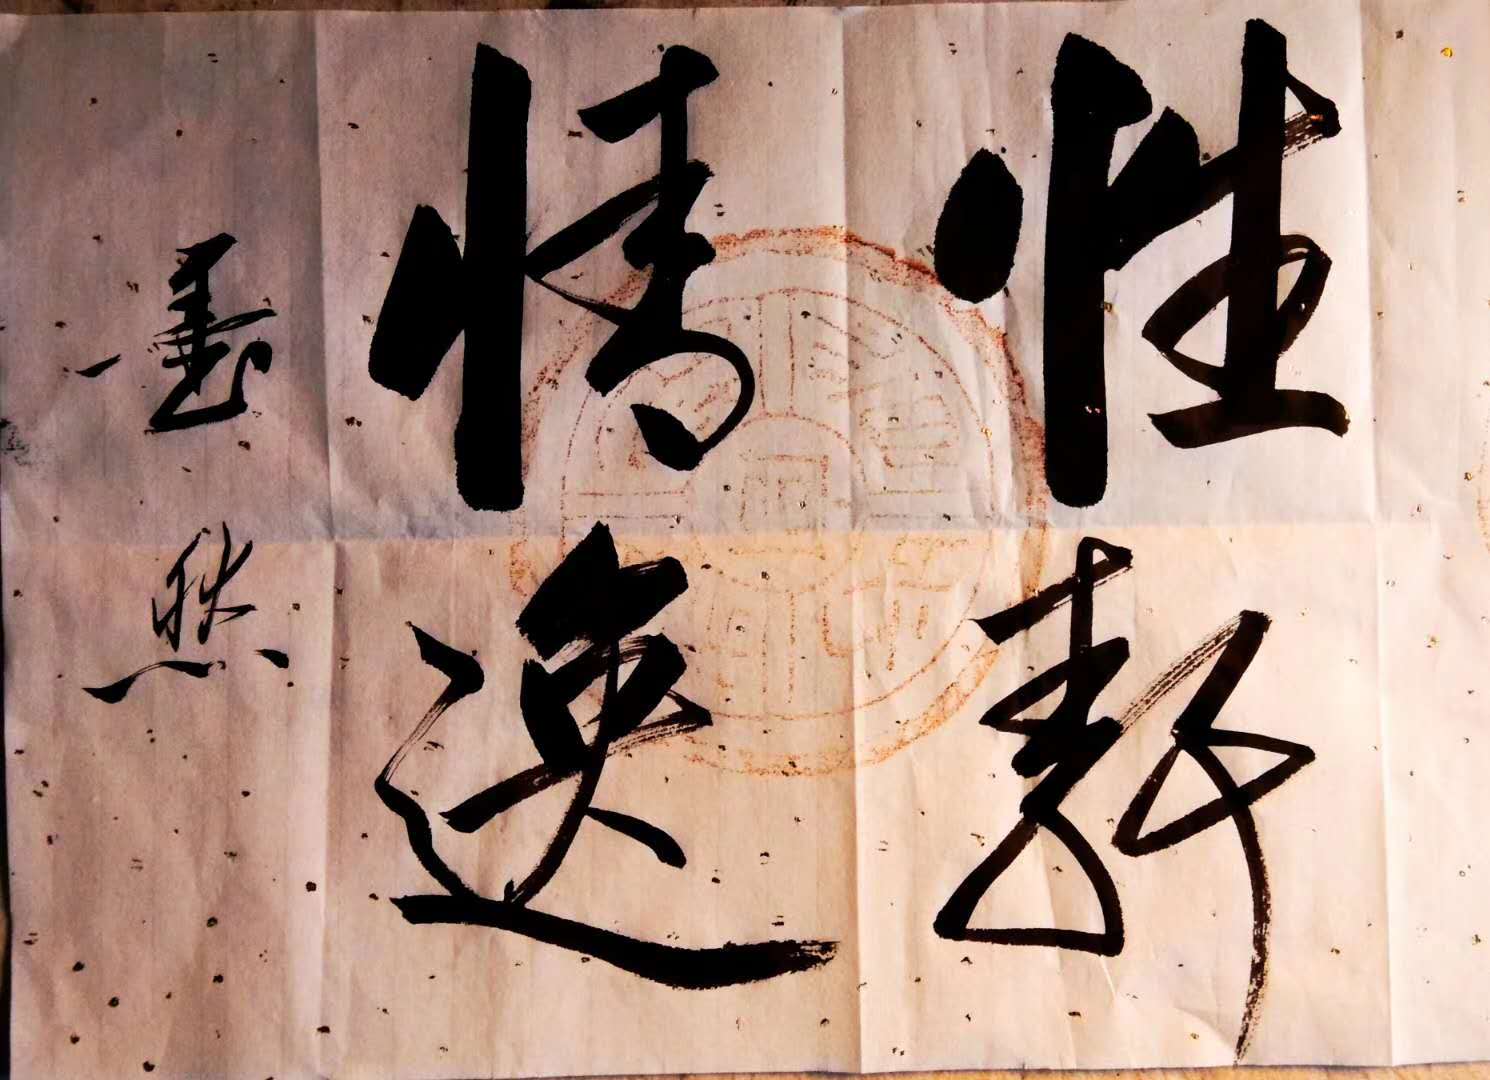 性静
情逸
墨然